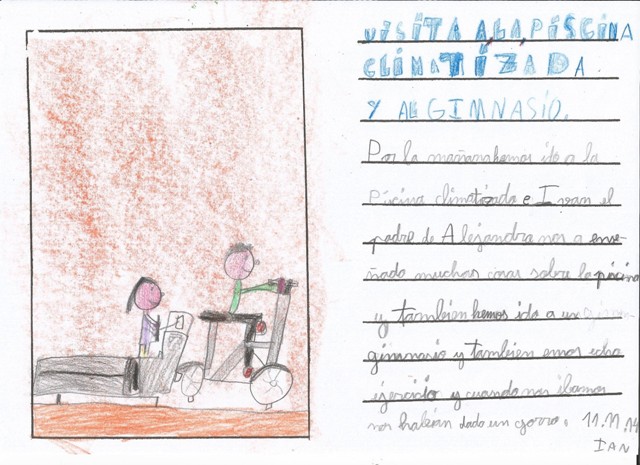 VISITA A LA PISCINA
CLIMATIZADA
Y AL GIMNASIO.
Por la mañana hemos ido a la
picina climatizada e Ivan el
padre de Alejandra nos a ense-
ñado muchas cosas sobre la picina
y tambien hemos ido a un
gimnasio y tambien emos echo
ejercicio y cuando nos ibamos
nos habian dado un gorro. 11.11.14
IAN